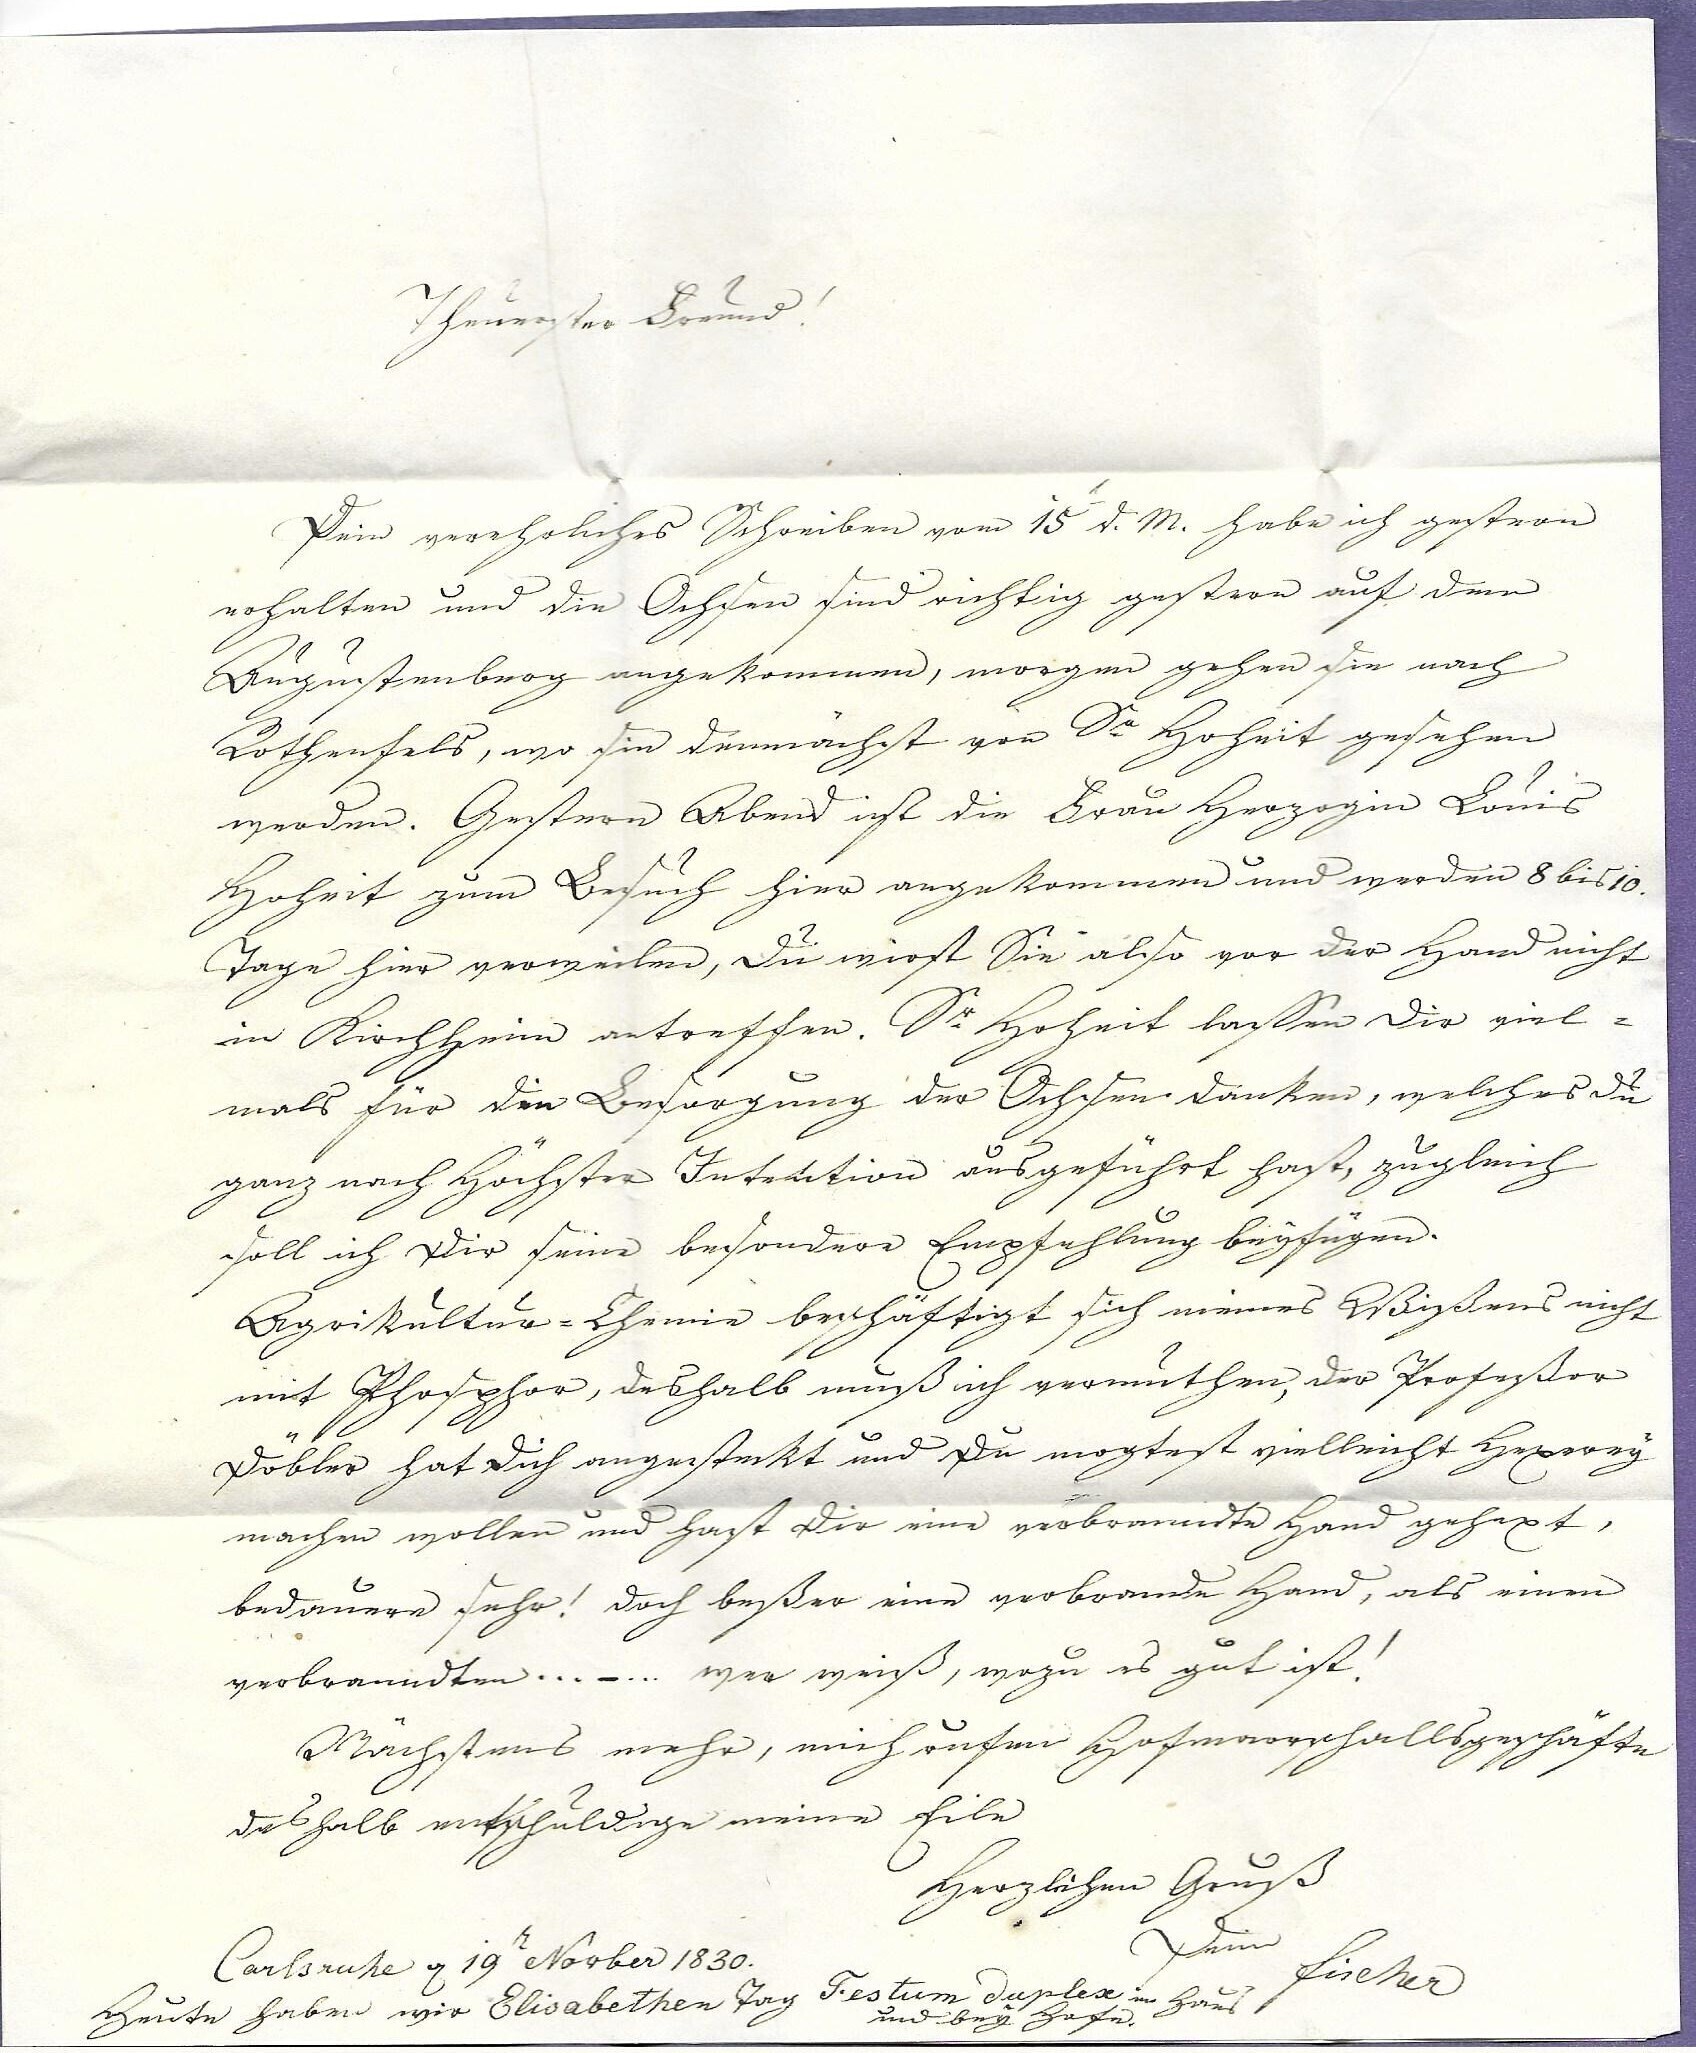 Theuerster Freund!
Dein verehrliches Schreiben vom 15t d. M. habe ich gestern
erhalten und die Ochsen sind richtig gestern auf dem
Augustenberg angekommen, morgen gehen sie nach
Rothenfels, wo sie demnächst von Sr Hoheit gesehen
werden. Gestern Abend ist die Frau Herzogin Louis
Hoheit zum Besuch hier angekommen und werden 8 bis 10.
Tage hier verweilen, Du wirst Sie also vor der Hand nicht
in Kirchheim antreffen. Sr Hoheit lassen Dir viel=
mals für die Besorgung der Ochsen danken, welches Du
ganz nach Höchster Intention ausgeführt hast, zugleich
soll ich Dir seine besondere Empfehlung beyfügen.
Agrikultur=Chemie beschäftigt sich meines Wißens nicht
mit Phosphor, deshalb muß ich vermuthen, der Profeßor
Döbler hat Dich angestekt und Du mogtest vielleicht Hexerey
machen wollen und hast Dir eine verbranndte Hand gehext,
bedauere sehr! doch beßer eine verbrande Hand, als einen
verbranndten ... – ... wer weiß, wozu es gut ist!
Nächstens mehr, mich rufen Hofmarschallsgeschäfte
deshalb entschuldige meine Eile
Herzlichen Gruß
Dein
Fischer
Carlsruhe 19t Novber 1830.
Heute haben wir Elisabethen Tag Festum duplex im Haus
und bey Hofe.